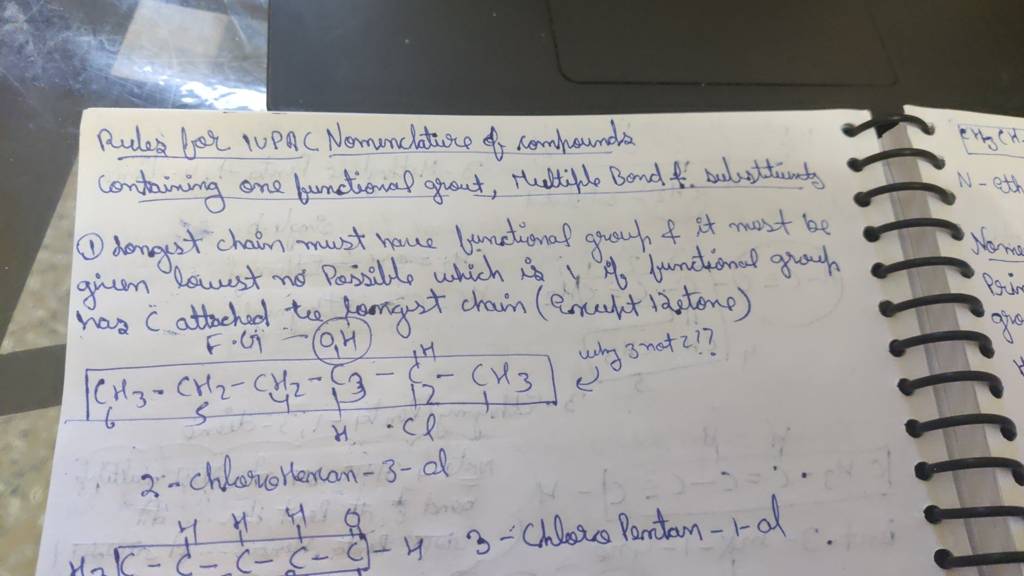 Rules for IUPAC Nomenclature of compounds
containing one functional grout, Multiple Bond & substituents
① Longest chain must have functional group & it must be
given lowest no Possible which is 1 if functional group
has C attached to longest chain (Except Ketone)
F.G → OH H
CH3 - CH2 - CH2 - C - C - CH3 why 3 not 2??
6 5 4 3 2 1
H Cl
2-chloroHexan-3-ol
H H H O
H3 C - C - C - C - C - H 3-Chloro Pentan-1-al
CH3 CH
N-eth
Nome
Prin
gro